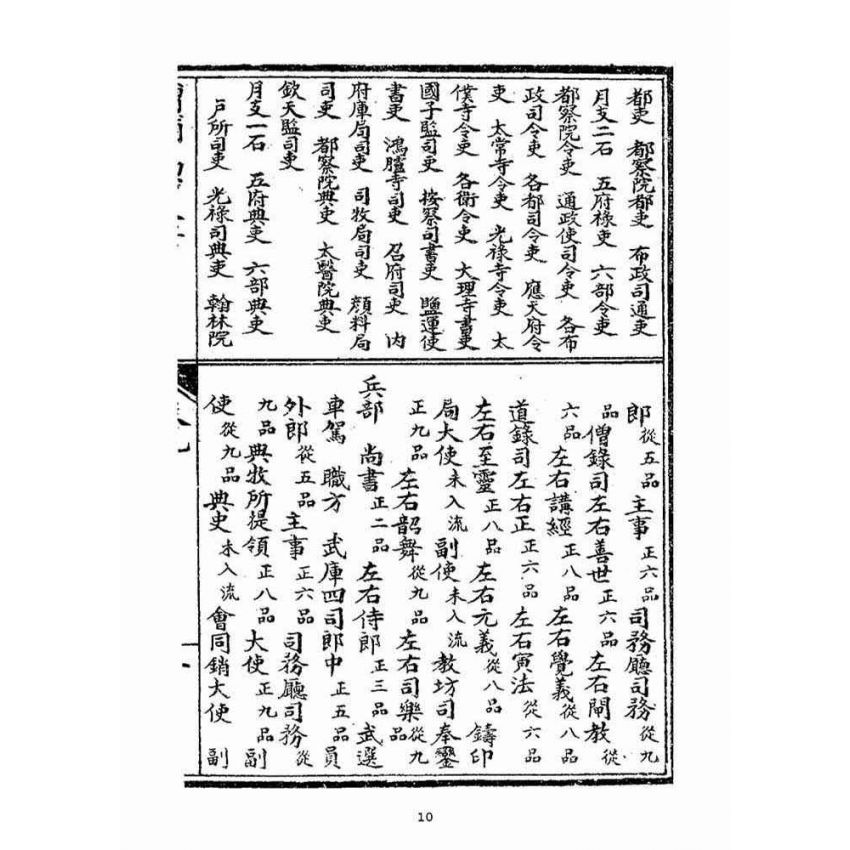 都吏　都察院都吏　布政司通吏
月支二石　五府祿吏　六部令吏
都察院令吏　通政使司令吏　各布
政司令吏　各都司令吏　應天府令
吏　太常寺令吏　光祿寺令吏　太
僕寺令吏　各衛令吏　大理寺書吏
國子監司吏　按察司書吏　鹽運使
書吏　鴻臚寺司吏　召府司吏　內
府庫局司吏　司牧局司吏　顏料局
司吏　都察院典吏　太醫院典吏
欽天監司吏
月支一石　五府典吏　六部典吏
戶所司吏　光祿司典吏　翰林院
郎從五品　主事正六品　司務廳司務從九
品　僧錄司左右善世正六品　左右闡教從
六品　左右講經正八品　左右覺義從八品
道錄司左右正正六品　左右寅法從六品
左右至靈正八品　左右元義從八品　鑄印
局大使未入流　副使未入流　教坊司奉鑾
正九品　左右韶舞從九品　左右司樂從九品
兵部　尚書正二品　左右侍郎正三品　武選
車駕　職方　武庫四司郎中正五品　員
外郎從五品　主事正六品　司務廳司務從
九品　典牧所提領正八品　大使正九品　副
使從九品　典吏未入流　會同銷大使　副
10